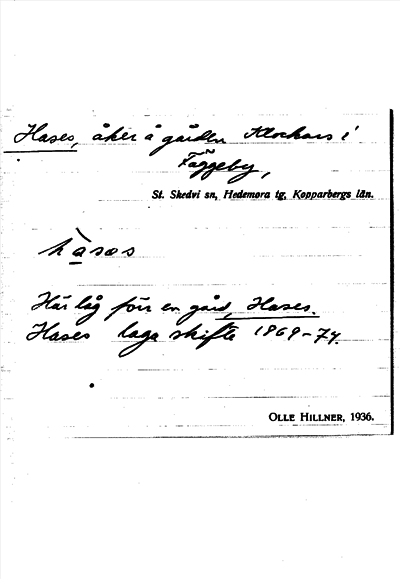 Hases, åker å gården Klockars i
Fäggeby,
St. Skedvi sn, Hedemora tg, Kopparbergs län.
hàsas
Här låg förr en gård, Hases.
Hases laga skifte 1869-74.
OLLE HILLNER, 1936.